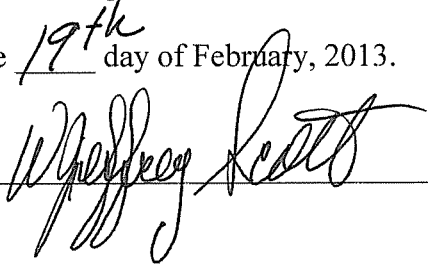 e 19th day of February, 2013.
W Jeffrey Scott